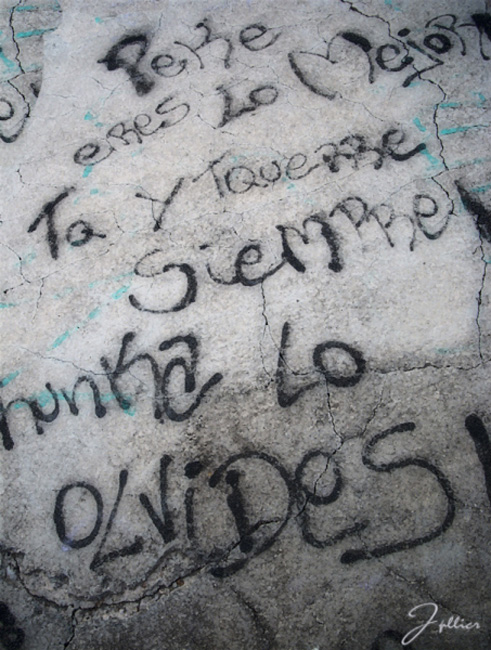 Peke
eres Lo Mejor
Ta Y Tquerre
Siempre!
nunka Lo
OLViDeS!
Jpllier